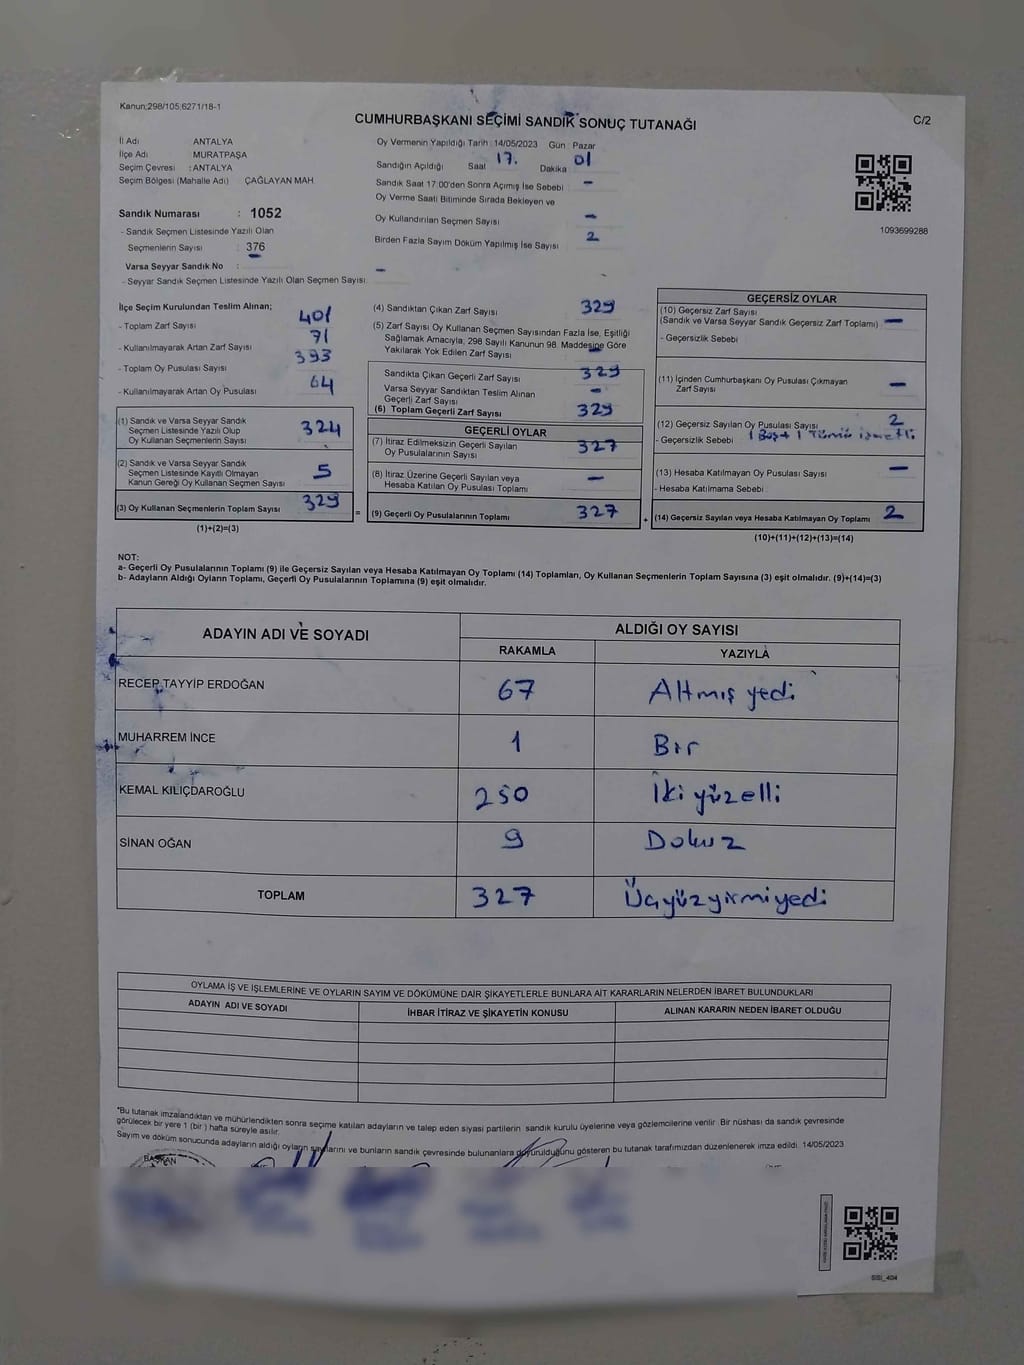 Kanun;298/105;6271/18-1
CUMHURBAŞKANI SEÇİMİ SANDIK SONUÇ TUTANAĞI
C/2
İl Adı ANTALYA
İlçe Adı MURATPAŞA
Seçim Çevresi : ANTALYA
Seçim Bölgesi (Mahalle Adı) ÇAĞLAYAN MAH
Sandık Numarası : 1052
- Sandık Seçmen Listesinde Yazılı Olan
Seçmenlerin Sayısı : 376
Varsa Seyyar Sandık No : –
- Seyyar Sandık Seçmen Listesinde Yazılı Olan Seçmen Sayısı
Oy Vermenin Yapıldığı Tarih : 14/05/2023 Gün : Pazar
Sandığın Açıldığı Saat 17. Dakika 01
Sandık Saat 17:00'den Sonra Açımış İse Sebebi –
Oy Verme Saati Bitiminde Sırada Bekleyen ve
Oy Kullandırılan Seçmen Sayısı –
Birden Fazla Sayım Döküm Yapılmış İse Sayısı 2
1093699288
İlçe Seçim Kurulundan Teslim Alınan;
- Toplam Zarf Sayısı 401
- Kullanılmayarak Artan Zarf Sayısı 71
- Toplam Oy Pusulası Sayısı 393
- Kullanılmayarak Artan Oy Pusulası 64
(1) Sandık ve Varsa Seyyar Sandık
Seçmen Listesinde Yazılı Olup
Oy Kullanan Seçmenlerin Sayısı 324
(2) Sandık ve Varsa Seyyar Sandık
Seçmen Listesinde Kayıtlı Olmayan
Kanun Gereği Oy Kullanan Seçmen Sayısı 5
(3) Oy Kullanan Seçmenlerin Toplam Sayısı 329
(1)+(2)=(3)
(4) Sandıktan Çıkan Zarf Sayısı 329
(5) Zarf Sayısı Oy Kullanan Seçmen Sayısından Fazla İse, Eşitliği
Sağlamak Amacıyla, 298 Sayılı Kanunun 98. Maddesine Göre
Yakılarak Yok Edilen Zarf Sayısı –
Sandıkta Çıkan Geçerli Zarf Sayısı 329
Varsa Seyyar Sandıktan Teslim Alınan
Geçerli Zarf Sayısı –
(6) Toplam Geçerli Zarf Sayısı 329
GEÇERLİ OYLAR
(7) İtiraz Edilmeksizin Geçerli Sayılan
Oy Pusulalarının Sayısı 327
(8) İtiraz Üzerine Geçerli Sayılan veya
Hesaba Katılan Oy Pusulası Toplamı –
= (9) Geçerli Oy Pusulalarının Toplamı 327 +
GEÇERSİZ OYLAR
(10) Geçersiz Zarf Sayısı
(Sandık ve Varsa Seyyar Sandık Geçersiz Zarf Toplamı) –
- Geçersizlik Sebebi
(11) İçinden Cumhurbaşkanı Oy Pusulası Çıkmayan
Zarf Sayısı –
(12) Geçersiz Sayılan Oy Pusulası Sayısı 2
- Geçersizlik Sebebi 1 Boş + 1
(13) Hesaba Katılmayan Oy Pusulası Sayısı –
- Hesaba Katılmama Sebebi
(14) Geçersiz Sayılan veya Hesaba Katılmayan Oy Toplamı 2
(10)+(11)+(12)+(13)=(14)
NOT:
a- Geçerli Oy Pusulalarının Toplamı (9) ile Geçersiz Sayılan veya Hesaba Katılmayan Oy Toplamı (14) Toplamları, Oy Kullanan Seçmenlerin Toplam Sayısına (3) eşit olmalıdır. (9)+(14)=(3)
b- Adayların Aldığı Oyların Toplamı, Geçerli Oy Pusulalarının Toplamına (9) eşit olmalıdır.
ADAYIN ADI VE SOYADI ALDIĞI OY SAYISI
RAKAMLA YAZIYLA
RECEP TAYYİP ERDOĞAN 67 Altmış yedi
MUHARREM İNCE 1 Bir
KEMAL KILIÇDAROĞLU 250 İki yüzelli
SİNAN OĞAN 9 Dokuz
TOPLAM 327 Üçyüzyirmiyedi
OYLAMA İŞ VE İŞLEMLERİNE VE OYLARIN SAYIM VE DÖKÜMÜNE DAİR ŞİKAYETLERLE BUNLARA AİT KARARLARIN NELERDEN İBARET BULUNDUKLARI
ADAYIN ADI VE SOYADI İHBAR İTİRAZ VE ŞİKAYETİN KONUSU ALINAN KARARIN NEDEN İBARET OLDUĞU
*Bu tutanak imzalandıktan ve mühürlendikten sonra seçime katılan adayların ve talep eden siyasi partilerin sandık kurulu üyelerine veya gözlemcilerine verilir. Bir nüshası da sandık çevresinde
görülecek bir yere 1 (bir) hafta süreyle asılır.
Sayım ve döküm sonucunda adayların aldığı oyların sayılarını ve bunların sandık çevresinde bulunanlara duyurulduğunu gösteren bu tutanak tarafımızdan düzenlenerek imza edildi. 14/05/2023
BAŞKAN
SSI_404